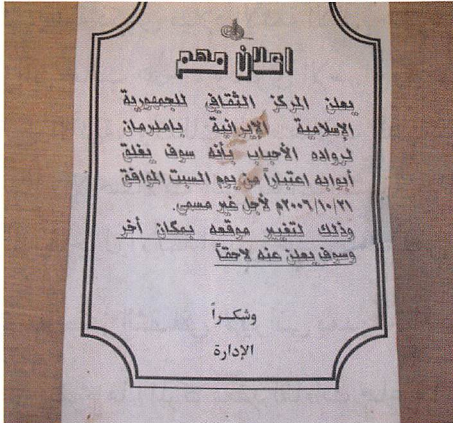 اعلان مهم
يعلن المركز الثقافي للجمهورية
الإسلامية الإيرانية بامدرمان
لرواده الأحباب بأنه سوف يغلق
أبوابه اعتباراً من يوم السبت الموافق
٢٠٠٦/١٠/٢١م لأجل غير مسمى.
وذلك لتغيير موقعه بمكان أخر
وسوف يعلن عنه لاحقاً
وشكراً
الإدارة